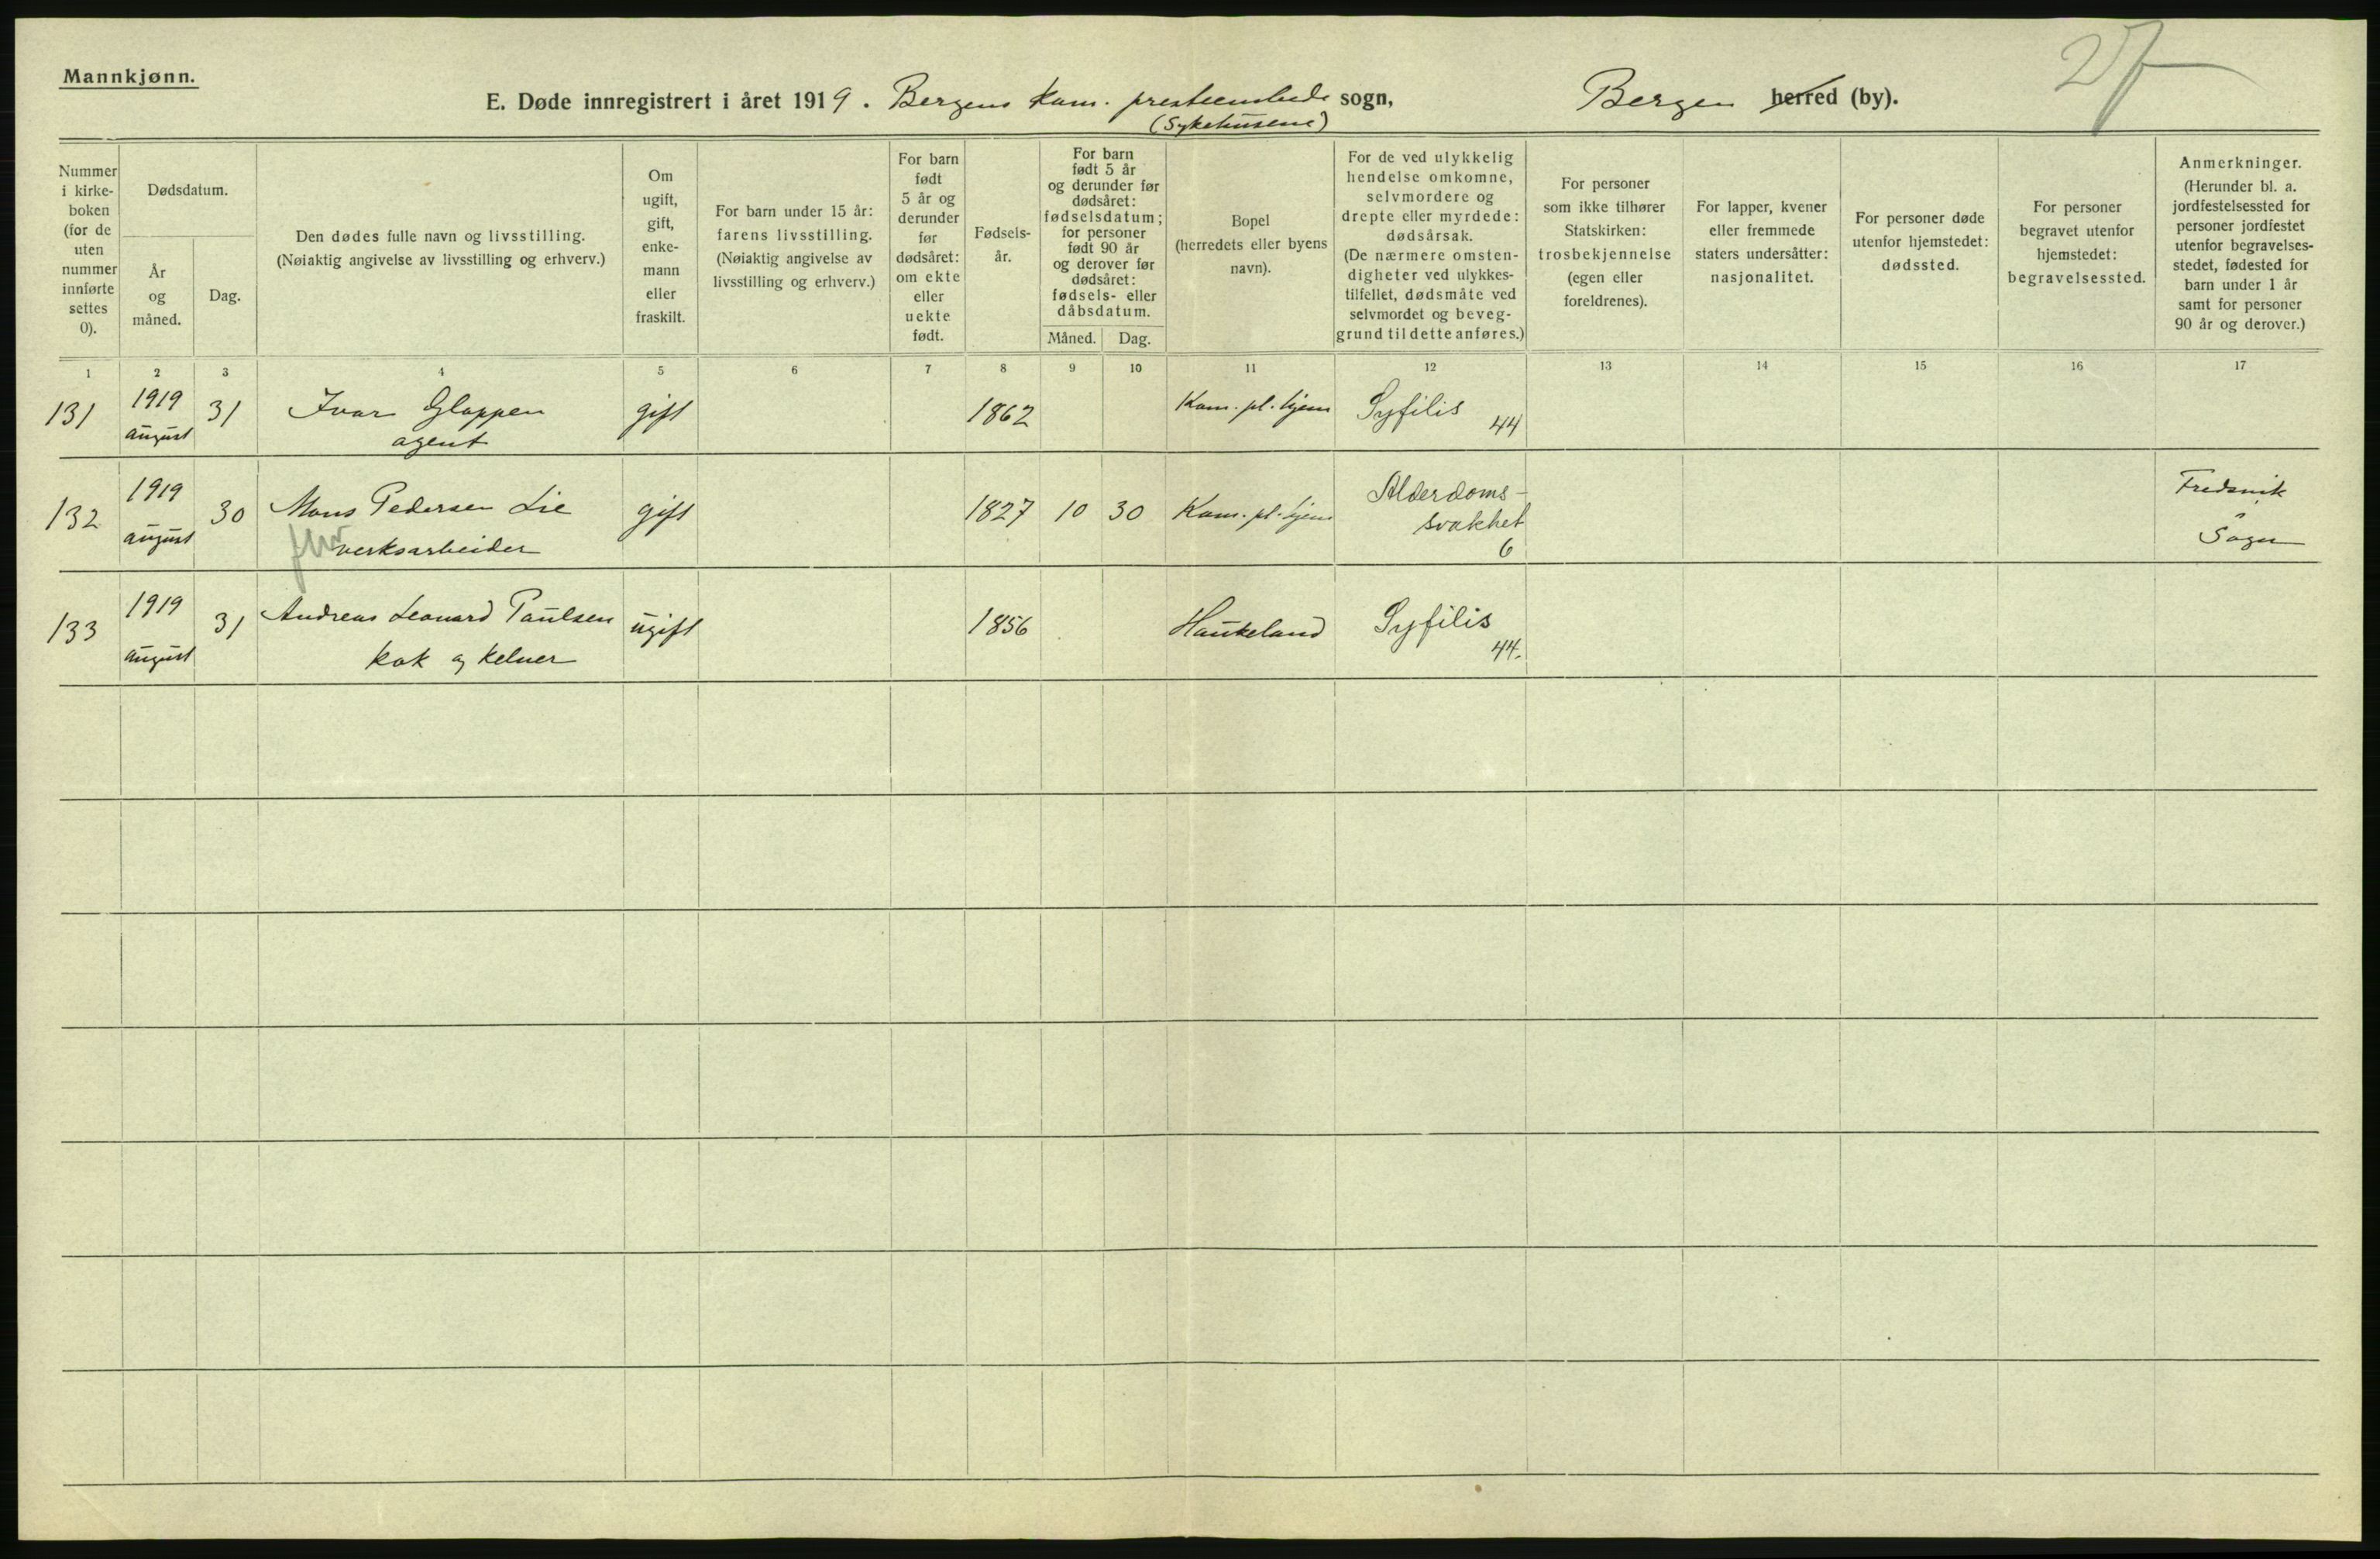 Mannkjønn.
27
E. Døde innregistrert i året 1919. Bergens kom. presteembede sogn, Bergen herred (by).
(Sykehusene)
Nummer i kirke-boken (for de uten nummer innførte settes 0).
Dødsdatum.
År og måned.
Dag.
Den dødes fulle navn og livsstilling.
(Nøiaktig angivelse av livsstilling og erhverv.)
Om ugift, gift, enke-mann eller fraskilt.
For barn under 15 år: farens livsstilling.
(Nøiaktig angivelse av livsstilling og erhverv.)
For barn født 5 år og derunder før dødsåret: om ekte eller uekte født.
Fødsels-år.
For barn født 5 år og derunder før dødsåret: fødselsdatum; for personer født 90 år og derover før dødsåret: fødsels- eller dåbsdatum.
Måned.
Dag.
Bopel
(herredets eller byens navn).
For de ved ulykkelig hendelse omkomne, selvmordere og drepte eller myrdede: dødsårsak.
(De nærmere omsten-digheter ved ulykkes-tilfellet, dødsmåte ved selvmordet og beveg-grund til dette anføres.)
For personer som ikke tilhører Statskirken: trosbekjennelse (egen eller foreldrenes).
For lapper, kvener eller fremmede staters undersåtter: nasjonalitet.
For personer døde utenfor hjemstedet: dødssted.
For personer begravet utenfor hjemstedet: begravelsessted.
Anmerkninger.
(Herunder bl. a. jordfestelsessted for personer jordfestet utenfor begravelses-stedet, fødested for barn under 1 år samt for personer 90 år og derover.)
1 2 3 4 5 6 7 8 9 10 11 12 13 14 15 16 17
131 1919 august 31 Ivar Gloppen agent gift 1862 Kom. pl. hjem Syfilis 44
132 1919 august 30 Mons Pedersen Lie verksarbeider gift 1827 10 30 Kom. pl. hjem Alderdoms-svakhet 6 Sogn
133 1919 august 31 Andreas Leonard Paulsen kok og kelner ugift 1856 Haukeland Syfilis 44.